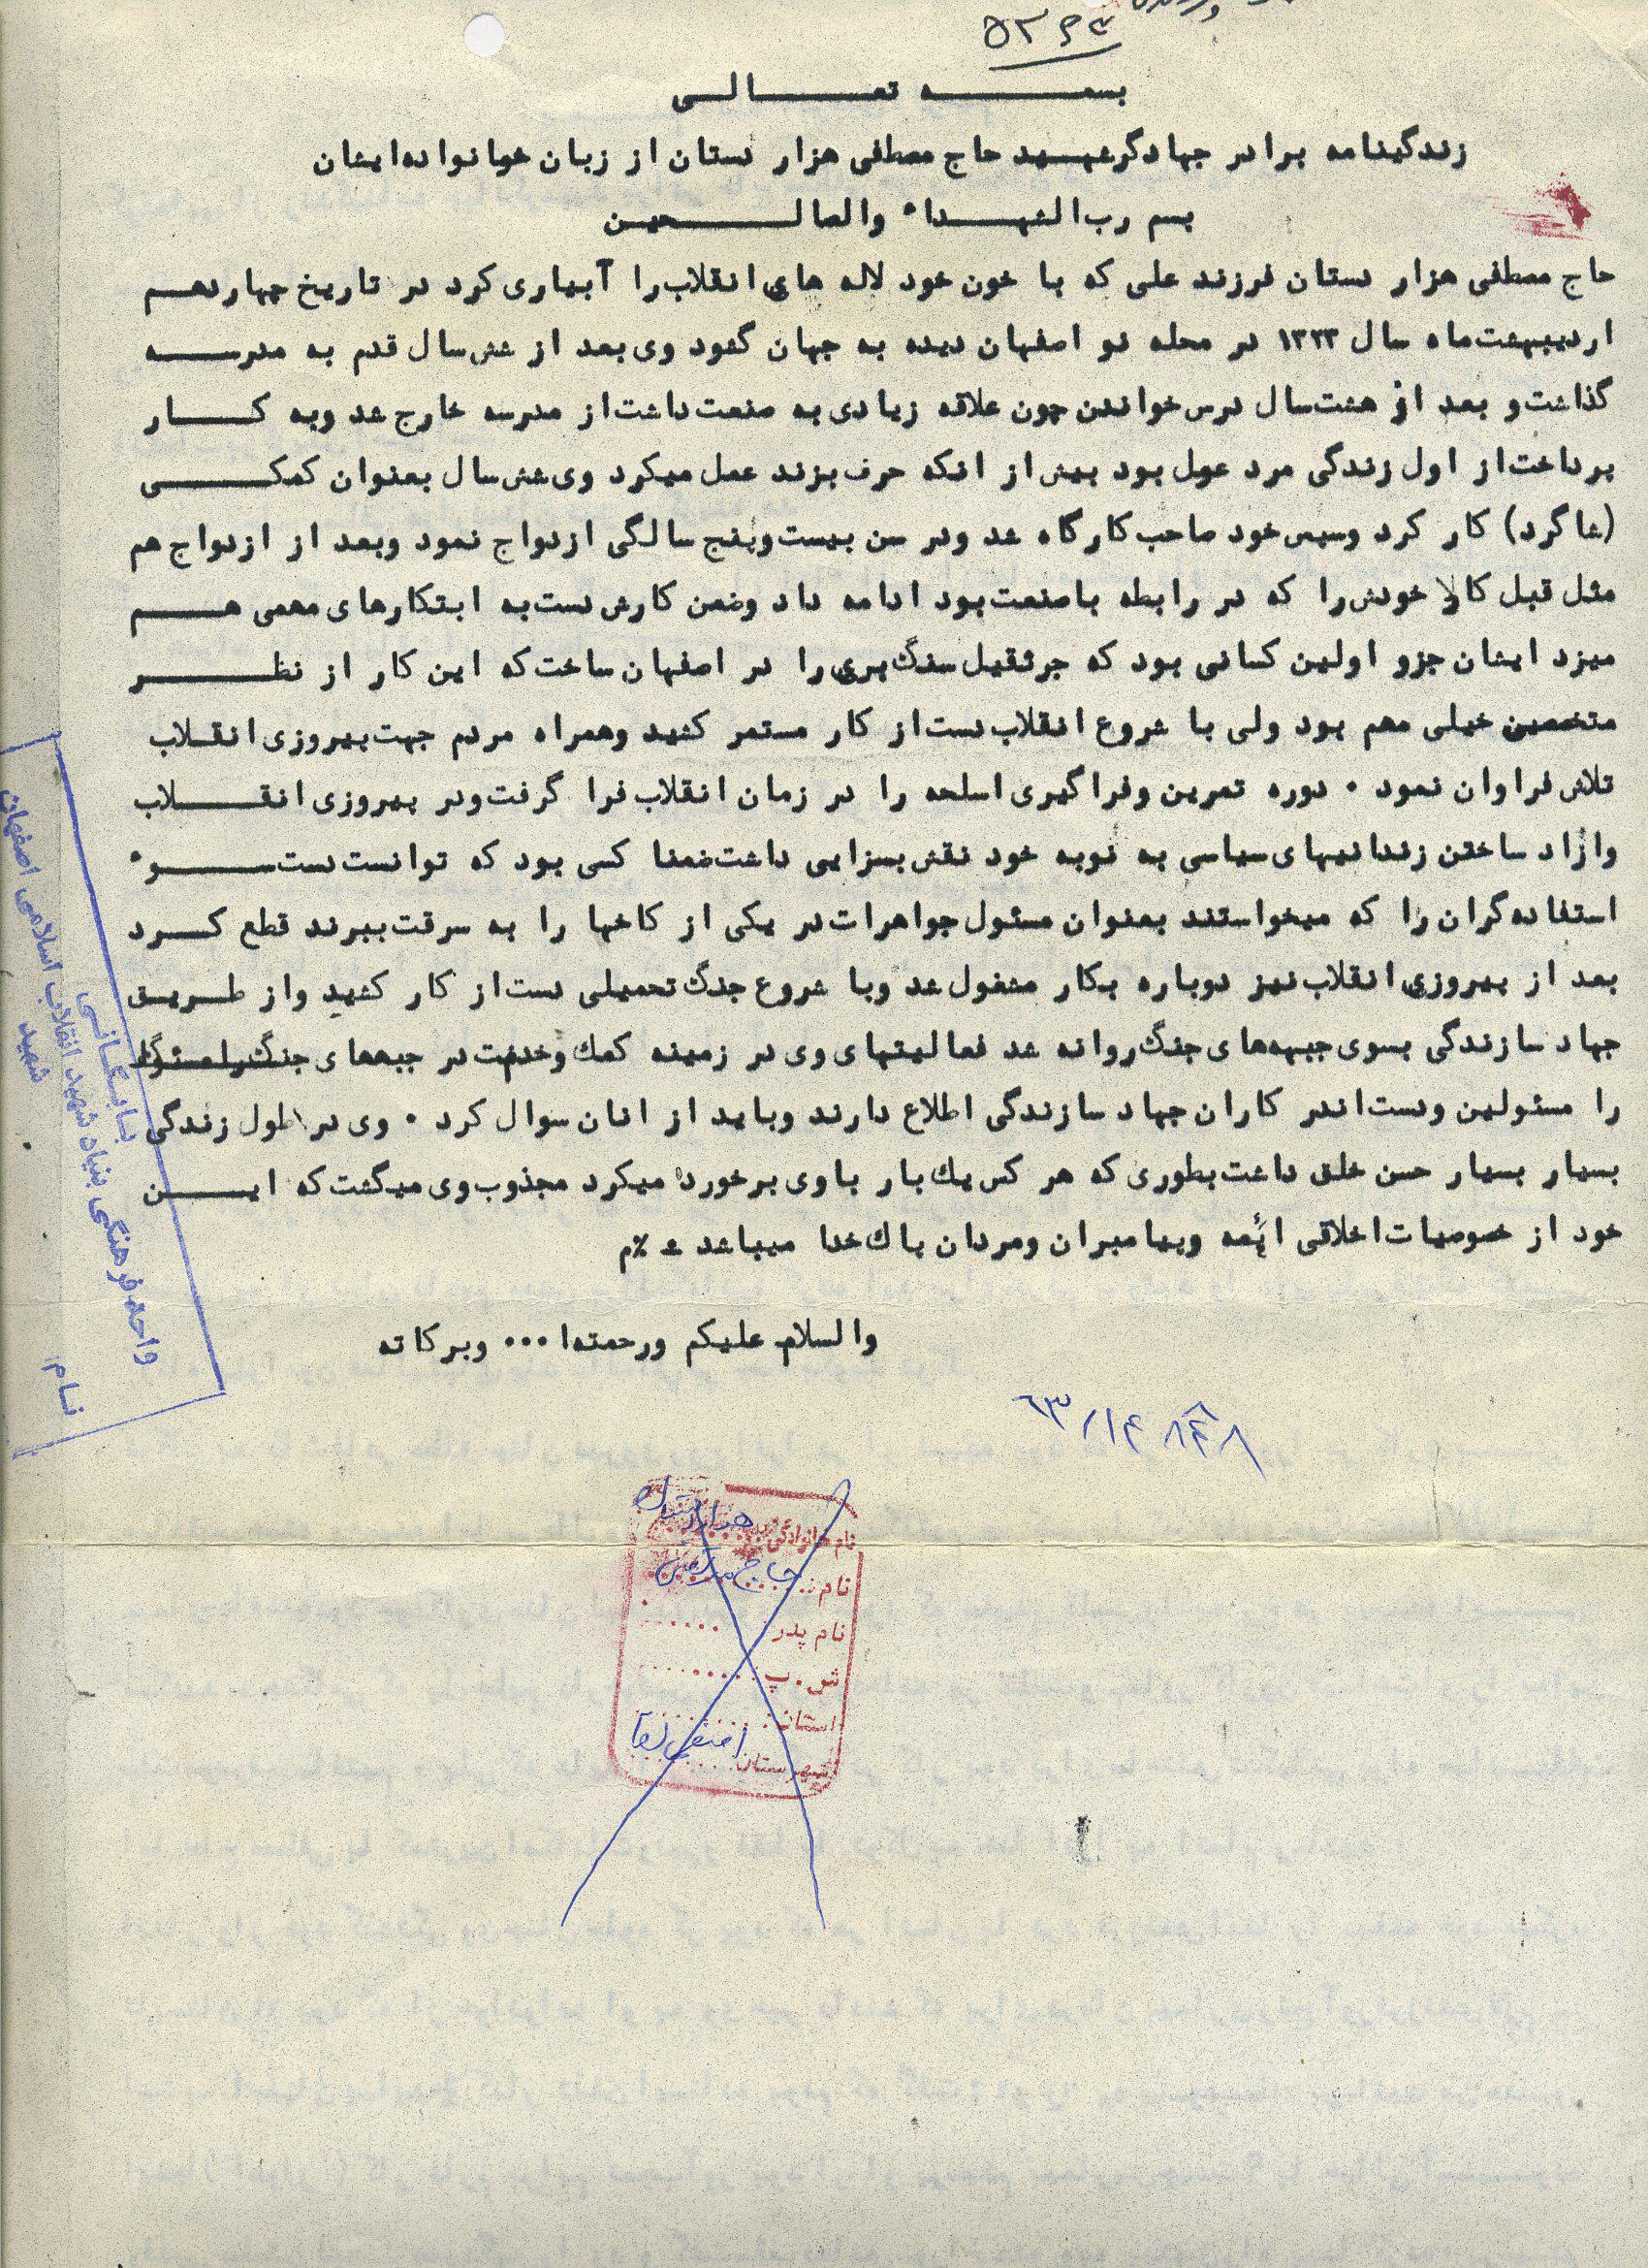 ۵۳۶۴
بسمه تعالی
زندگینامه برادر جهادگرشهید حاج مصطفی هزار دستان از زبان خوانواده‌ایشان
بسم رب الشهداء والصالحین
حاج مصطفی هزار دستان فرزند علی که با خون خود لاله های انقلاب را آبیاری کرد در تاریخ چهاردهم
اردیبهشت‌ماه سال ۱۳۲۳ در محله نو اصفهان دیده به جهان گشود وی بعد از شش سال قدم به مدرسه
گذاشت و بعد از هشت سال درس خواندن چون علاقه زیادی به صنعت داشت از مدرسه خارج شد وبه کار
پرداخت از اول زندگی مرد عمل بود بیش از انکه حرف بزند عمل میکرد وی شش سال بعنوان کمکی
(شاگرد) کار کرد وسپس خود صاحب کارگاه شد ودر سن بیست وپنج سالگی ازدواج نمود وبعد از ازدواج هم
مثل قبل کالا خودش را که در رابطه باصنعت بود ادامه داد وضمن کارش دست به ابتکارهای مهمی هم
میزد ایشان جزو اولین کسانی بود که جرثقیل سنگ بری را در اصفهان ساخت که این کار از نظر
متخصصین خیلی مهم بود ولی با شروع انقلاب دست از کار مستمر کشید وهمراه مردم جهت پیروزی انقلاب
تلاش فراوان نمود . دوره تمرین وفراگیری اسلحه را در زمان انقلاب فرا گرفت ودر پیروزی انقلاب
وازاد ساختن زندانیهای سیاسی به نوبه خود نقش بسزایی داشت ضمنا کسی بود که توانست دست سوء
استفاده گران را که میخواستند بعنوان مسئول جواهرات در یکی از کاخها را به سرقت ببرند قطع کرد
بعد از پیروزی انقلاب نیز دوباره بکار مشغول شد وبا شروع جنگ تحمیلی دست از کار کشید واز طریق
جهاد سازندگی بسوی جبهه‌های جنگ روانه شد فعالیتهای وی در زمینه کمک وخدمت در جبهه‌های جنگ
را مسئولین ودست اندر کاران جهاد سازندگی اطلاع دارند وباید از انان سوال کرد . وی در طول زندگی
بسیار بسیار حسن خلق داشت بطوری که هر کس یک بار باوی برخورد میکرد مجذوب وی میگشت که این
خود از خصوصیات اخلاقی ائمه وپیامبران ومردان پاک خدا میباشد
والسلام علیکم ورحمته‌ا ... وبرکاته
بایگانی
واحد فرهنگی بنیاد شهید انقلاب اسلامی اصفهان
شهید
نام
نام خانوادگی: هزاردستان
نام: حاج مصطفی
نام پدر:
ش . پ:
استان:
شهرستان: اصفهان